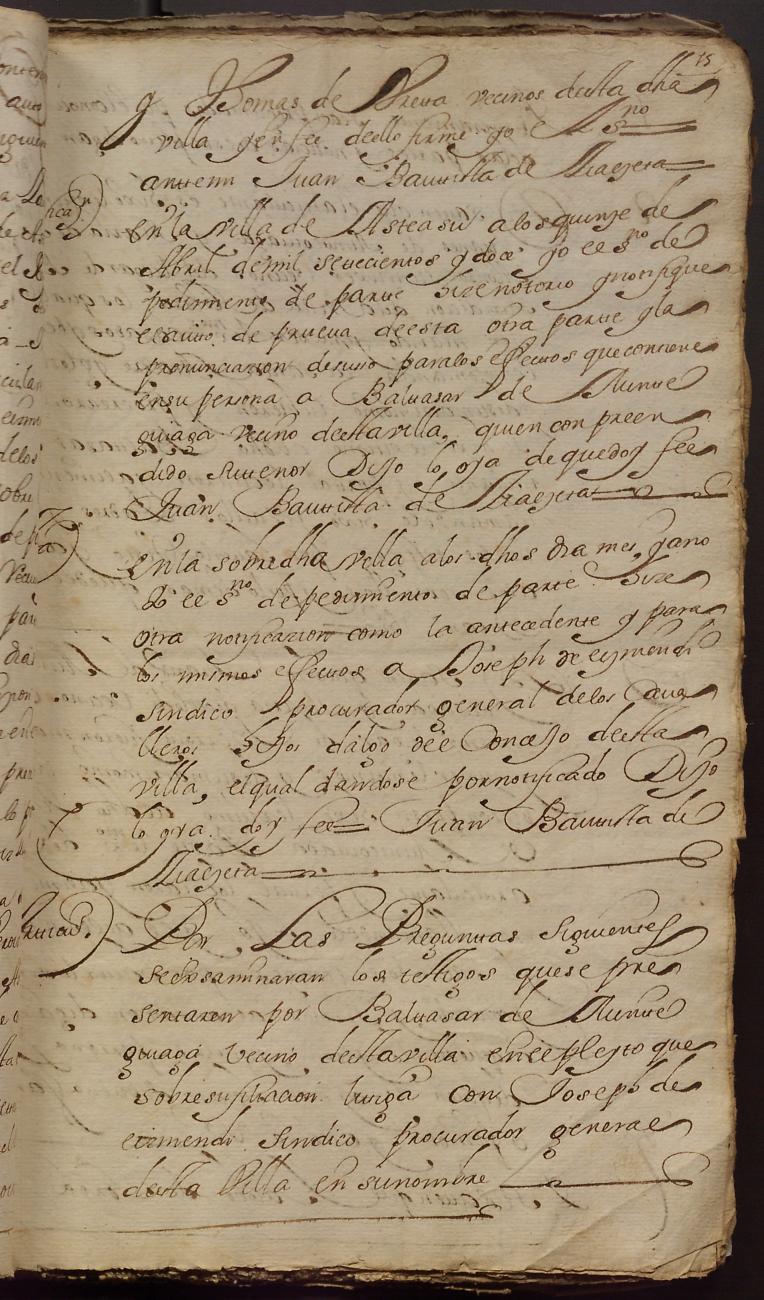 15
y Thomas de Vrera vecinos desta dha
villa y en fee deello firme yo el s.no
antemi Juan Bautista de Liazeta
En la villa de Asteasu a los quinze de
Abril de mil setecientos y doze yo ee s.no de
pedimento de parte hize notorio y notifique
el auto de prueva de esta otra parte y la
pronunciazion de suso para los effectos que contiene
en su persona a Baltasar de
vecino desta villa, quien conpreen
dido su tenor Dijo lo oja de que doy fee
Juan Bautista de Liazeta
En la sobre dha villa a los dhos dia mes, y año
Yo ee s.no de pedimento de parte hize
otra notificazion como la antecedente y para
los mismos effectos a Joseph de eizmendi
sindico procurador general de los Cava
lleros hijos dalgo dee Concejo desta
villa, el qual dandose por notificado Dijo
lo oyra. doy fee Juan Bautista de
Liazeta
Por Las Preguntas siguientes
se exsaminaran los testigos que se pre
sentaren por Baltasar de
vecino desta villa en ee pleyto que
sobre su filiacion litiga con Joseph de
eizmendi sindico procurador generae
desta Villa en su nombre